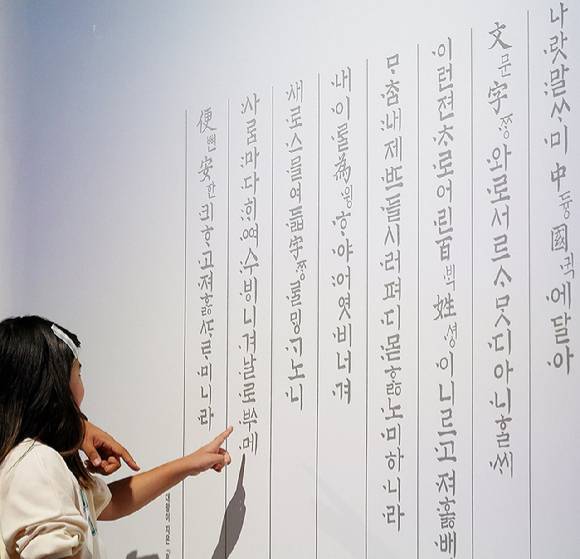 나·랏:말ᄊᆞ·미中듕國귁·에달·아
文문字ᄍᆞᆼ·와·로서르ᄉᆞᄆᆞᆺ디아·니ᄒᆞᆯ·ᄊᆡ
·이런젼·ᄎᆞ·로어·린百·ᄇᆡᆨ姓·셩·이니르·고·져·홇·배
ᄆᆞ·ᄎᆞᆷ:내제·ᄠᅳ·들시·러펴·디:몯ᄒᆞᇙ·노·미하·니·라
·내·이·ᄅᆞᆯ為·윙·ᄒᆞ·야:어엿·비너·겨
·새·로·스·믈여·듧字·ᄍᆞᆼ·ᄅᆞᆯᄆᆡᇰ·ᄀᆞ노·니
:사ᄅᆞᆷ:마·다:ᄒᆡ·ᅇᅧ:수·ᄫᅵ니·겨·날·로·ᄡᅮ·메
便뼌安한·킈ᄒᆞ·고·져ᄒᆞᇙᄯᆞᄅᆞ·미니·라
대왕이 지은